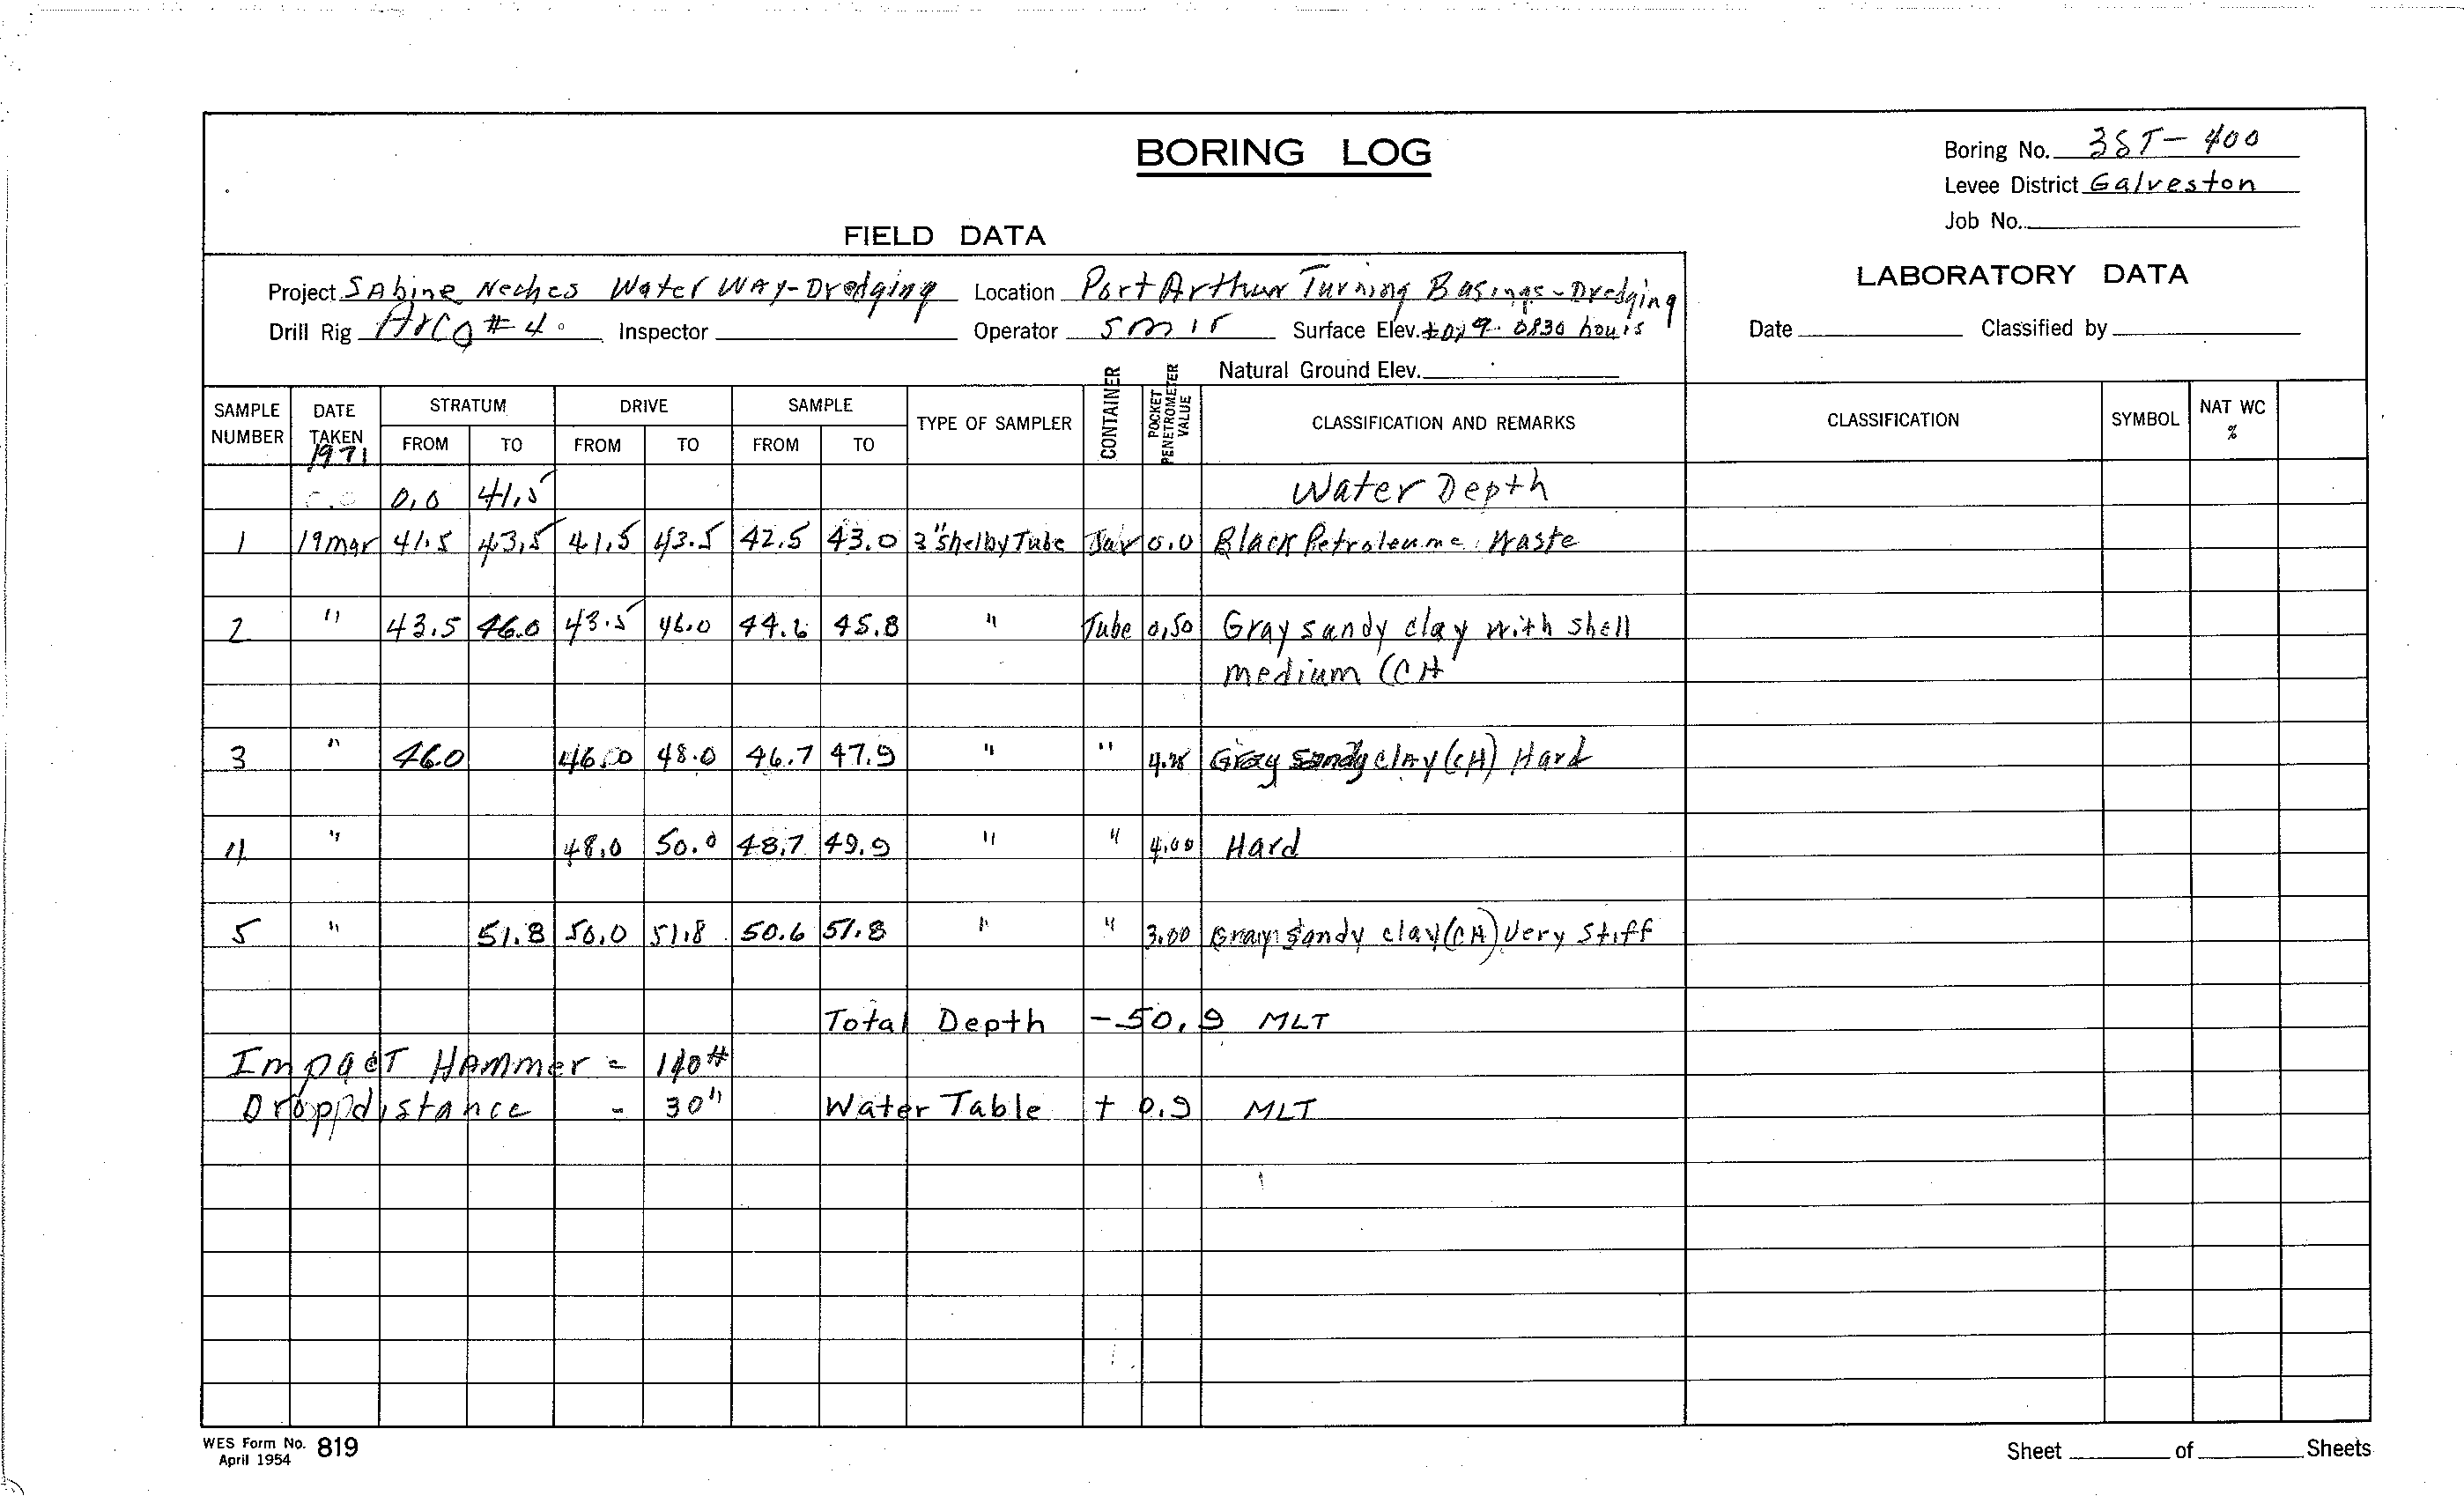 BORING LOG
Boring No. 3ST- 400
Levee District Galveston
Job No.
FIELD DATA
LABORATORY DATA
Project SAbine Neches Water WAY-Dredging Location Port Arthur Turning Basings-Dredging
Drill Rig Arco #4 Inspector Operator Surface Elev. +0.9 0830 hours Date Classified by
Natural Ground Elev.
SAMPLE NUMBER DATE TAKEN 1971 STRATUM FROM TO DRIVE FROM TO SAMPLE FROM TO TYPE OF SAMPLER CONTAINER POCKET PENETROMETER VALUE CLASSIFICATION AND REMARKS CLASSIFICATION SYMBOL NAT WC %
0.0 41.5 Water Depth
1 19 mar 41.5 43.5 41.5 43.5 42.5 43.0 3" Shelby Tube Jar 0.0 Black Petroleume Waste
2 " 43.5 46.0 43.5 46.0 44.6 45.8 " Tube 0.50 Gray sandy clay with shell
medium (CH
3 " 46.0 46.0 48.0 46.7 47.9 " " 4.25 Gray sandy clAy (CH) Hard
4 " 48.0 50.0 48.7 49.9 " " 4.00 Hard
5 " 51.8 50.0 51.8 50.6 51.8 " " 3.00 Gray sandy clay (CH) Very Stiff
Total Depth -50.9 MLT
ImpacT HAmmer = 140#
Dropp distance = 30" Water Table + 0.9 MLT
WES Form No. 819
April 1954
Sheet of Sheets